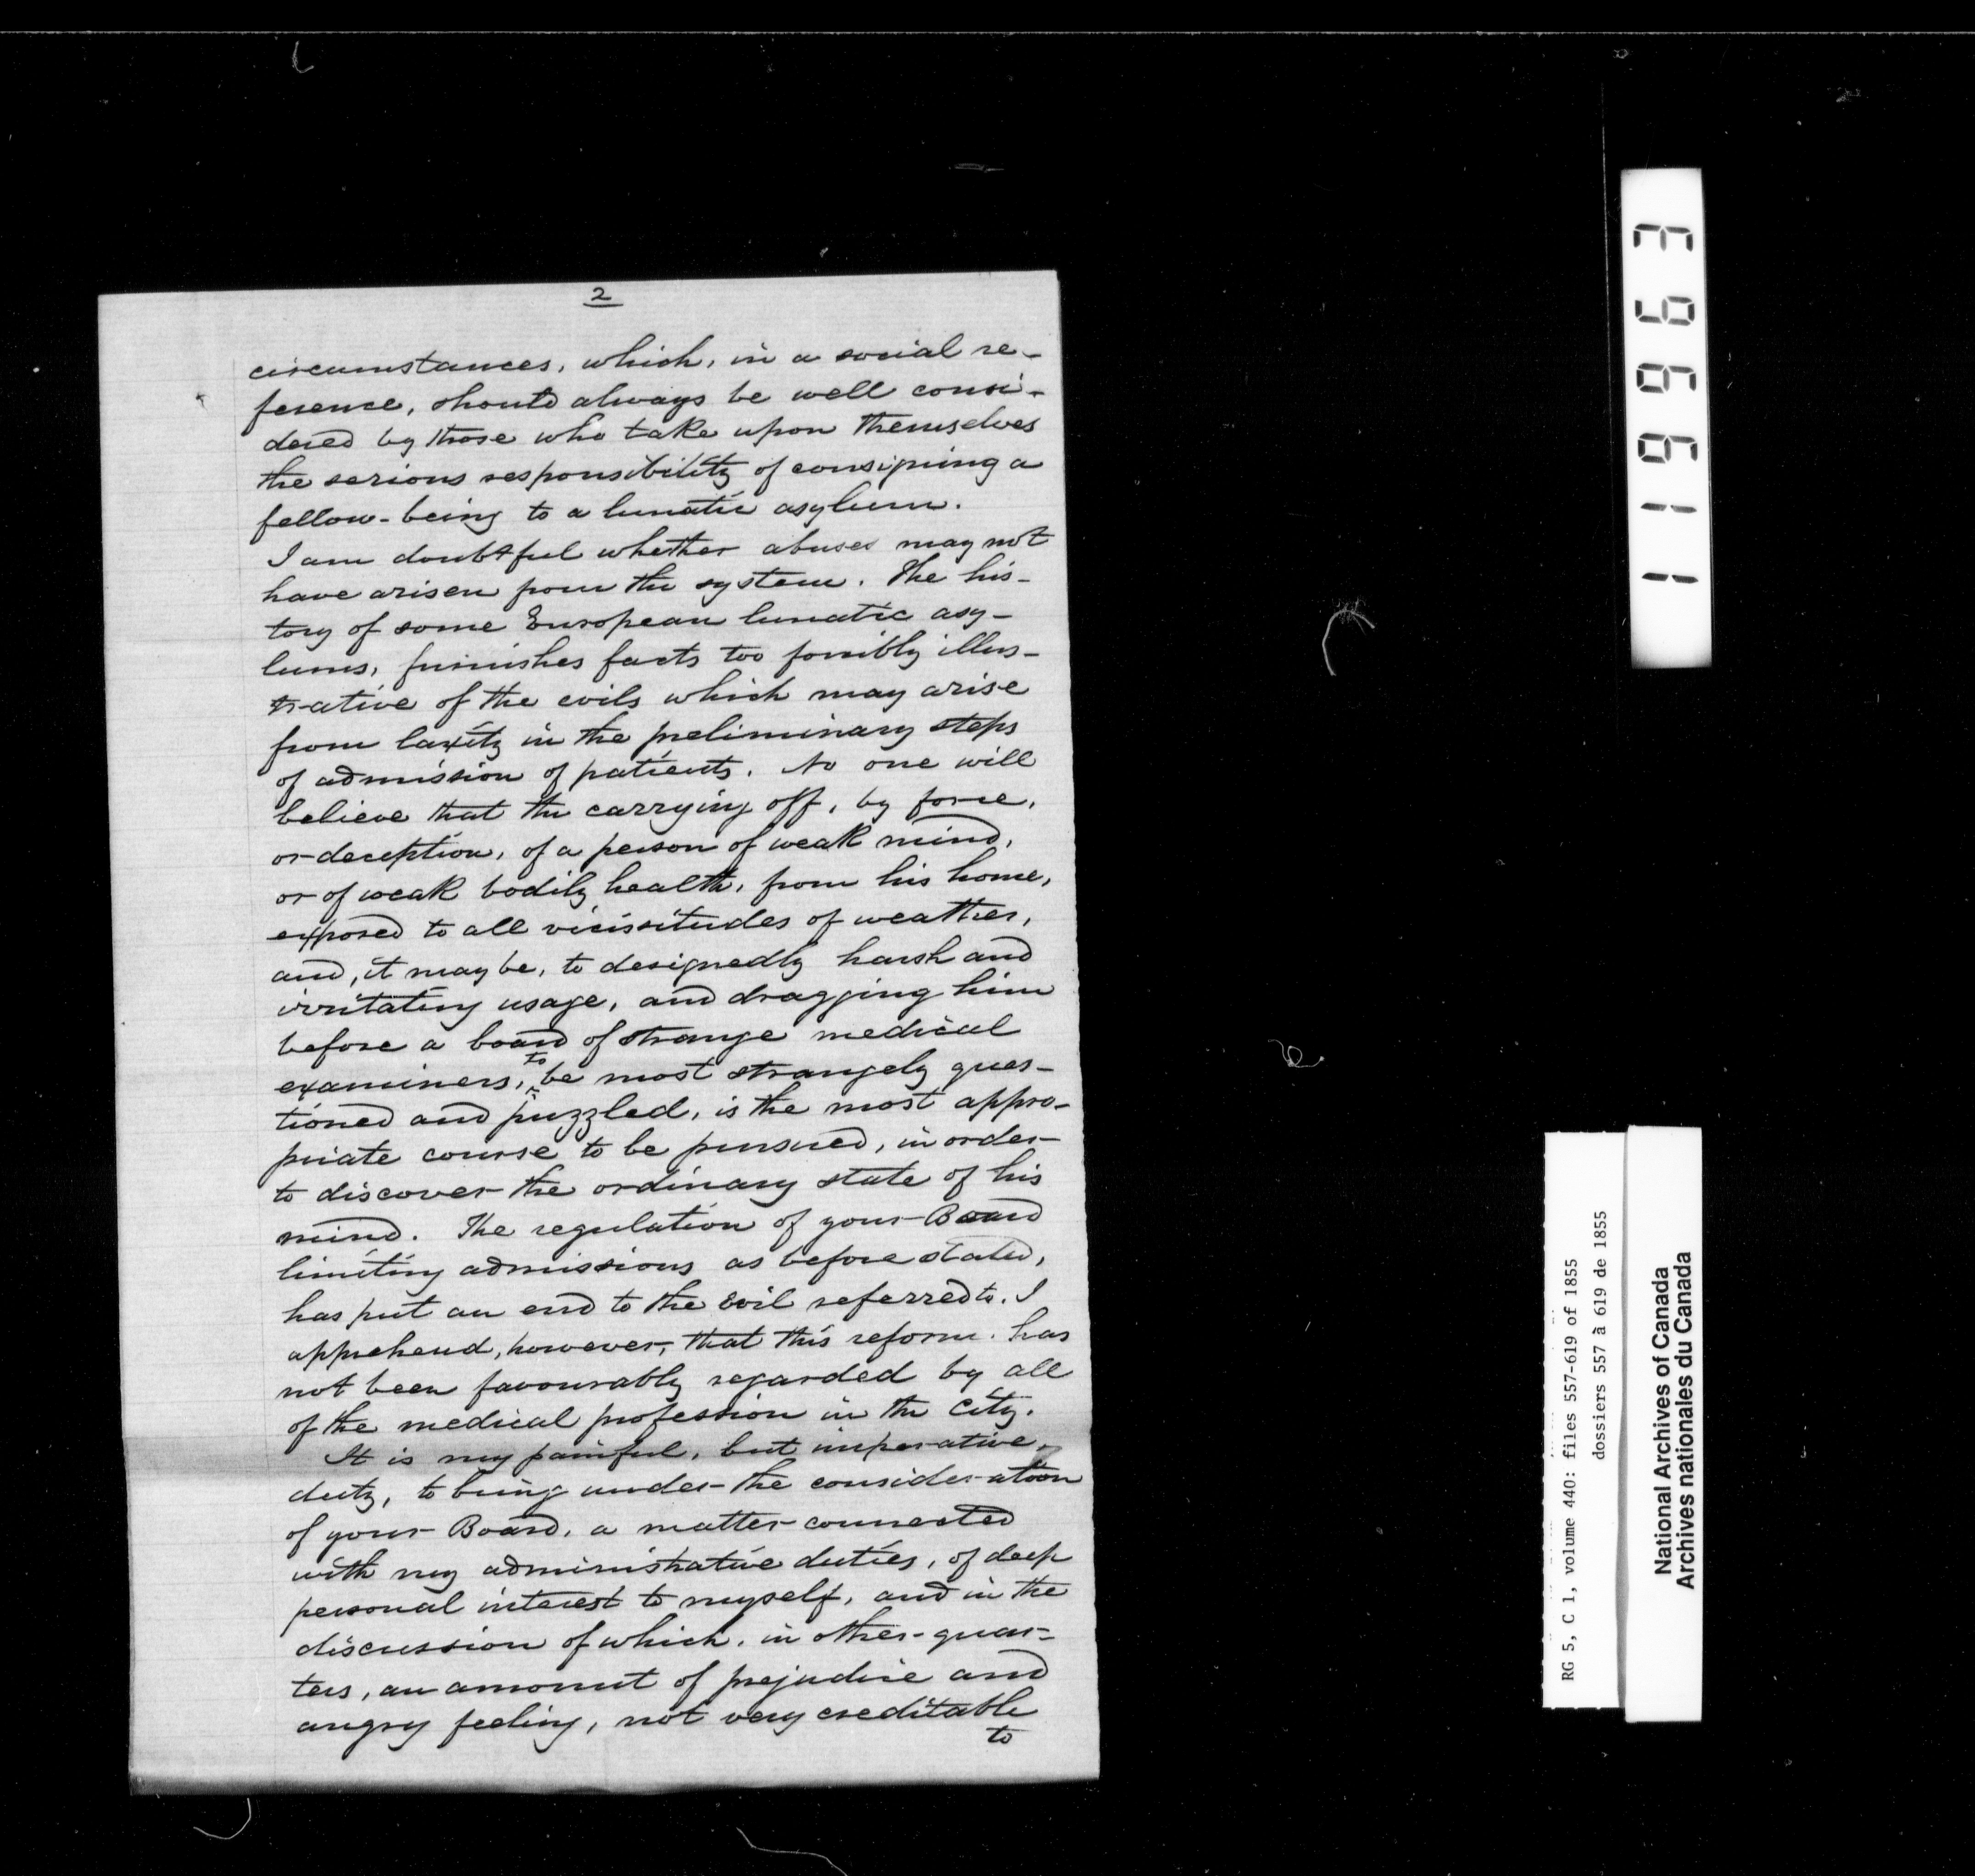 2
circumstances, which, in a social re-
ference, should always be well consi-
dered by those who take upon themselves
the serious responsibility of consigning a
fellow-being to a lunatic asylum.
I am doubtful whether abuses may not
have arisen from the system. The his-
tory of some European lunatic asy-
lums, furnishes facts too forcibly illus-
trative of the evils which may arise
from laxity in the preliminary steps
of admission of patients. No one will
believe that the carrying off, by force,
or deception, of a person of weak mind,
or of weak bodily health, from his home,
exposed to all vicissitudes of weather,
and, it may be, to designedly harsh and
irritating usage, and dragging him
before a board of strange medical
examiners, to be most strangely ques-
tioned and puzzled, is the most appro-
priate course to be pursued, in order
to discover the ordinary state of his
mind. The regulation of your Board
limiting admissions as before stated,
has put an end to the evil referred to. I
apprehend, however, that this reform has
not been favourably regarded by all
of the medical profession in the City.
It is my painful, but imperative,
duty, to bring under the consideration
of your Board, a matter connected
with my administrative duties, of deep
personal interest to myself, and in the
discussion of which, in other quar-
ters, an amount of prejudice and
angry feeling, not very creditable
to
119963
RG 5, C 1, volume 440: files 557-619 of 1855
dossiers 557 à 619 de 1855
National Archives of Canada
Archives nationales du Canada